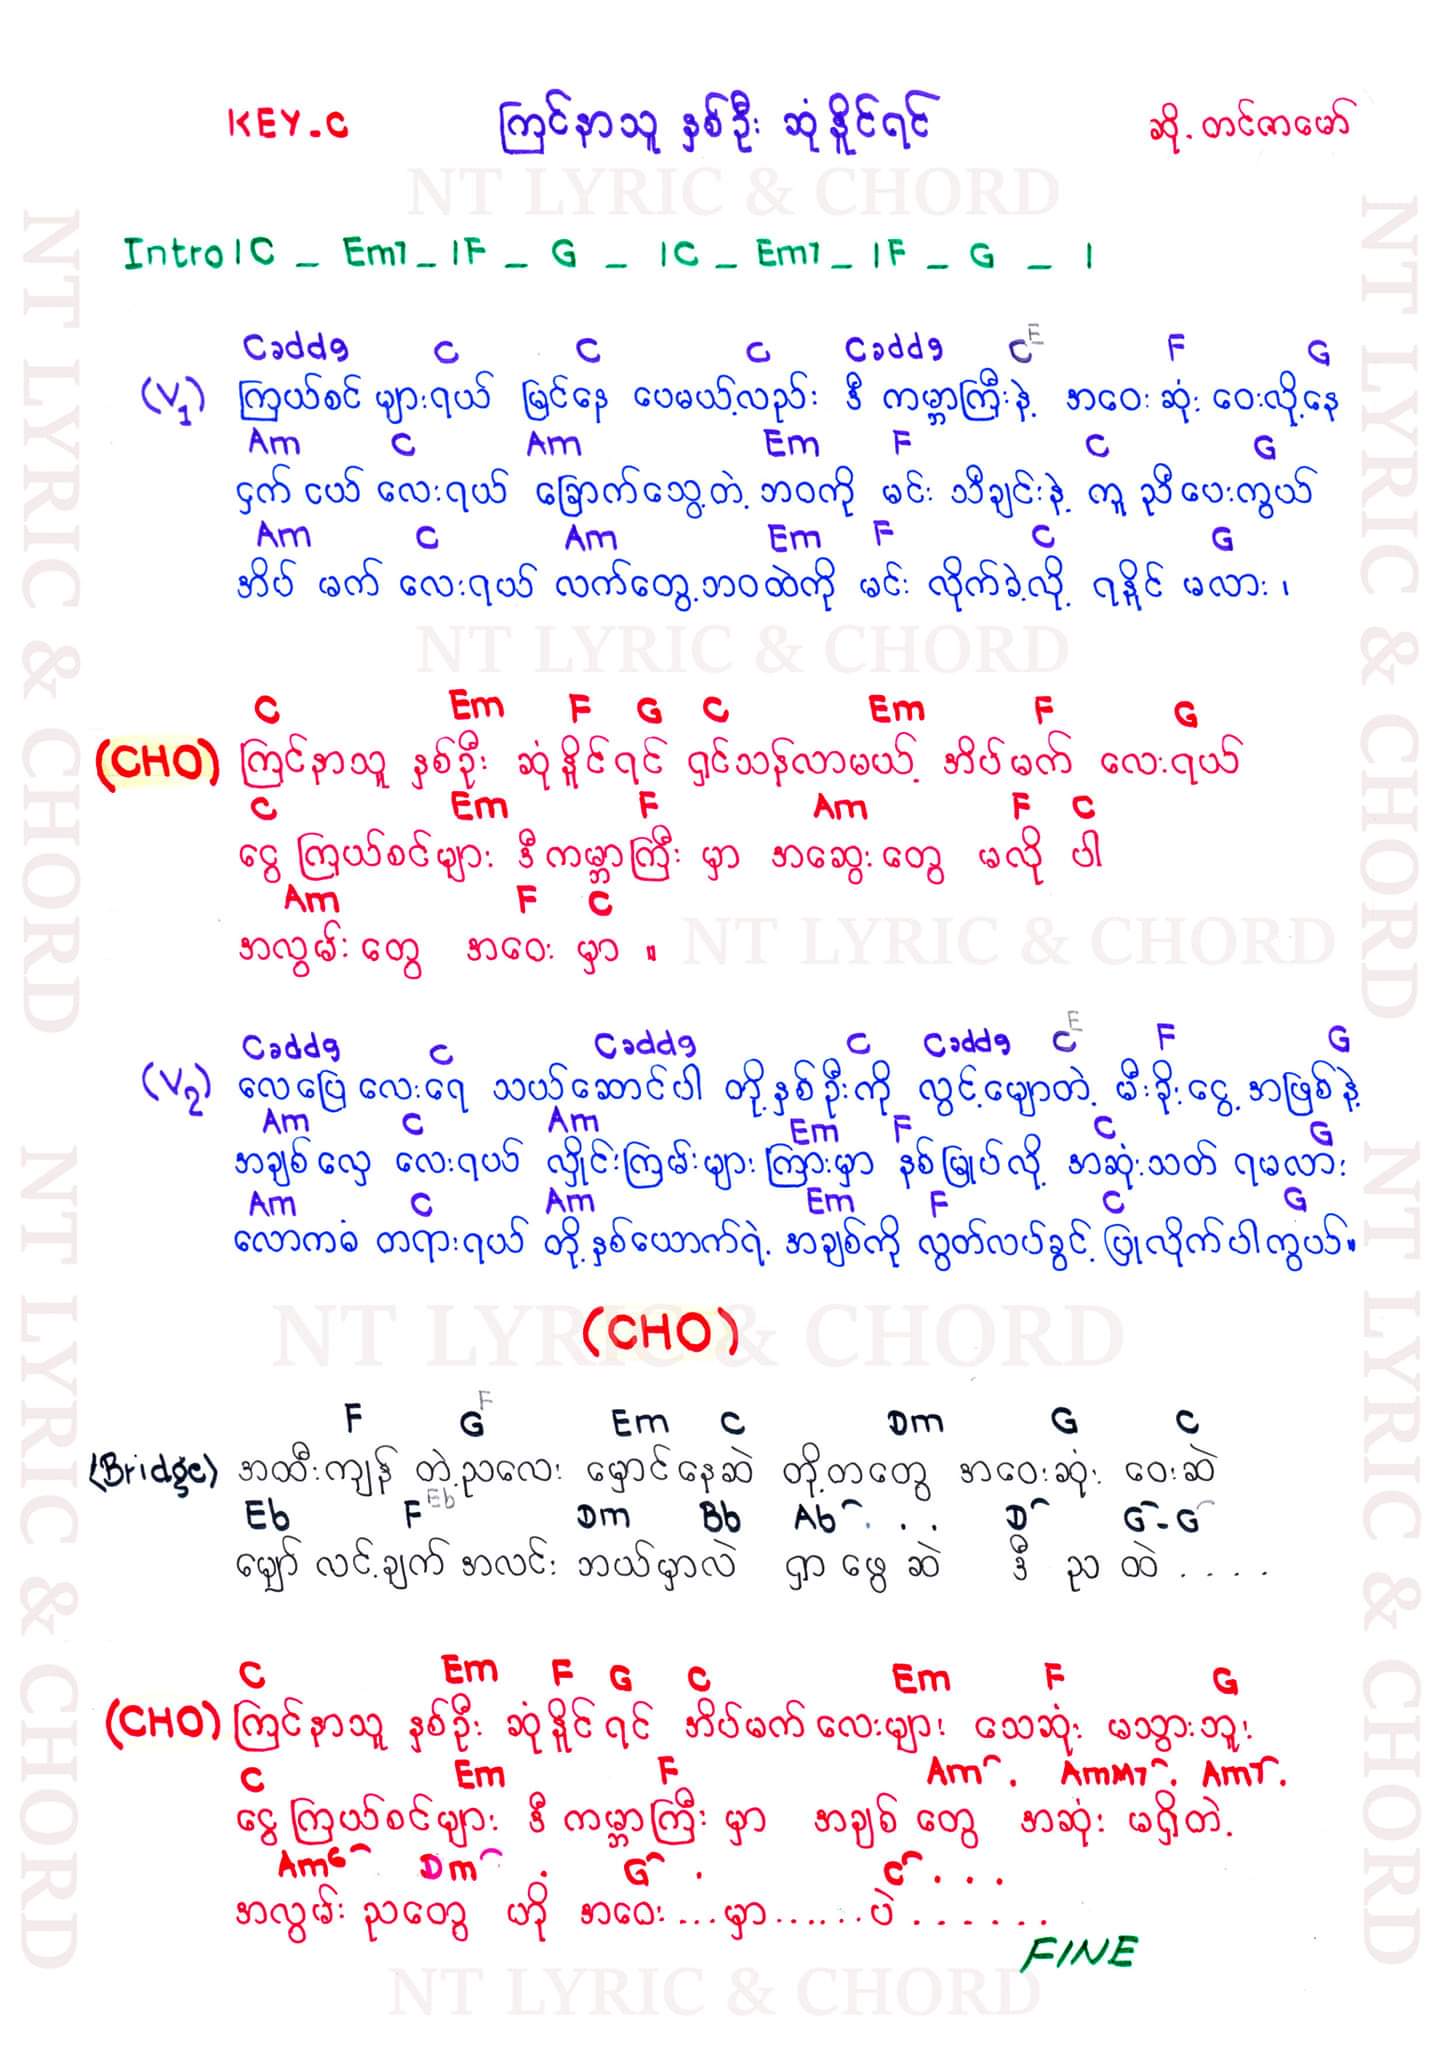 KEY-C ကြင်နာသူ နှစ်ဦး ဆုံနိူင်ရင် ဆို. တင်ဇာမော်
NT LYRIC & CHORD
Intro | C _ Em7 _ | F _ G _ | C _ Em7 _ | F _ G _ |
Cadd9 C C C Cadd9 C E F G
(V1) ကြယ်စင် များရယ် မြင်နေ ပေမယ့်လည်း ဒီ ကမ္ဘာကြီးနဲ့ အဝေး ဆုံး ဝေးလို့နေ
Am C Am Em F C G
ငှက် ငယ် လေးရယ် ခြောက်သွေ့တဲ့ ဘဝကို မင်း သီချင်းနဲ့ ကူ ညီပေးကွယ်
Am C Am Em F C G
အိပ် မက် လေးရယ် လက်တွေ့ဘဝထဲကို မင်း လိုက်ခဲ့လို့ ရနိူင် မလား ၊
NT LYRIC & CHORD
C Em F G C Em F G
(CHO) ကြင်နာသူ နှစ်ဦး ဆုံနိူင်ရင် ရှင်သန်လာမယ့် အိပ်မက် လေးရယ်
C Em F Am F C
ငွေ ကြယ်စင်များ ဒီကမ္ဘာကြီး မှာ အဆွေးတွေ မလို ပါ
Am F C
အလွမ်းတွေ အဝေး မှာ ။
NT LYRIC & CHORD
Cadd9 C Cadd9 C Cadd9 C E F G
(V2) လေပြေ လေးရေ သယ်ဆောင်ပါ တို့နှစ်ဦးကို လွင့်မျောတဲ့ မီးခိုးငွေ့ အဖြစ်နဲ့
Am C Am Em F C G
အချစ်လှေ လေးရယ် လှိုင်းကြမ်းများ ကြားမှာ နစ်မြုပ်လို့ အဆုံးသတ် ရမလား
Am C Am Em F C G
လောကဓံ တရားရယ် တို့နှစ်ယောက်ရဲ့ အချစ်ကို လွတ်လပ်ခွင့် ပြုလိုက်ပါကွယ်။
NT LYRIC & CHORD
(CHO)
F G F Em C Dm G C
(Bridge) အထီးကျန် တဲ့ညလေး မှောင်နေဆဲ တို့တတွေ အဝေးဆုံး ဝေးဆဲ
Eb F Eb Dm Bb Ab . . . D G - G
မျှော် လင့်ချက် အလင်း ဘယ်မှာလဲ ရှာ ဖွေ ဆဲ ဒီ ည ထဲ . . . .
C Em F G C Em F G
(CHO) ကြင်နာသူ နှစ်ဦး ဆုံနိူင်ရင် အိပ်မက်လေးများ သေဆုံး မသွားဘူး
C Em F Am . AmM7 . Am7 .
ငွေ ကြယ်စင်များ ဒီ ကမ္ဘာကြီး မှာ အချစ် တွေ အဆုံး မရှိတဲ့
Am6 Dm . G . C . . .
အလွမ်း ညတွေ ဟို အဝေး ... မှာ ...... ပဲ . . . . . .
FINE
NT LYRIC & CHORD
NT LYRIC & CHORD
NT LYRIC & CHORD
NT LYRIC & CHORD
NT LYRIC & CHORD